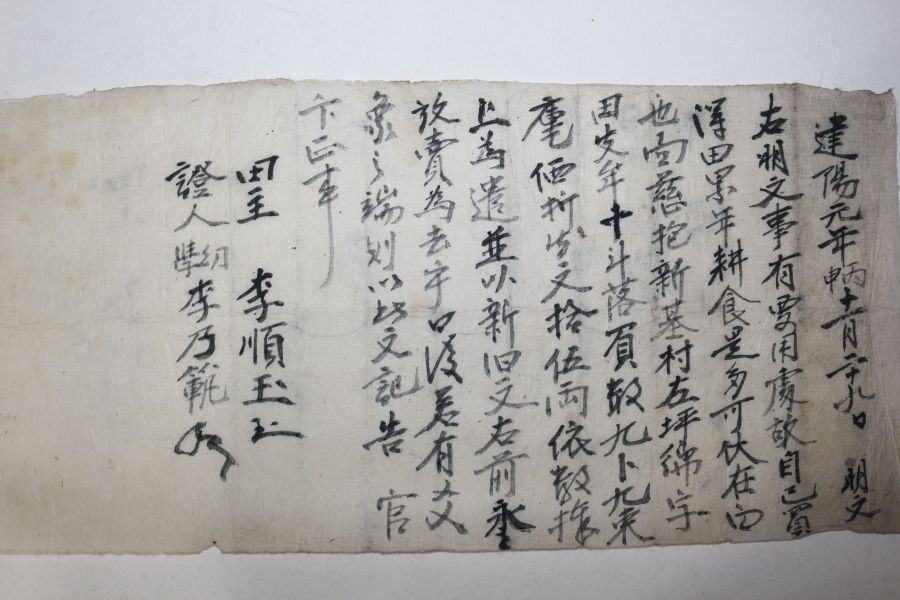 建陽元年丙申十一月二十九日 明文
右明文事有要用處故自己買
得田累年耕食是多可伏在向
也面慈抱新基村左坪綿字
田 十斗落頁數九卜九束
庫價折 文拾伍兩依數捧
上為遣並以新旧文右前永
放賣為去乎日後若有爻
象之端則以此文記告 官
卞正事
田主 李順玉
證人幼學李乃範